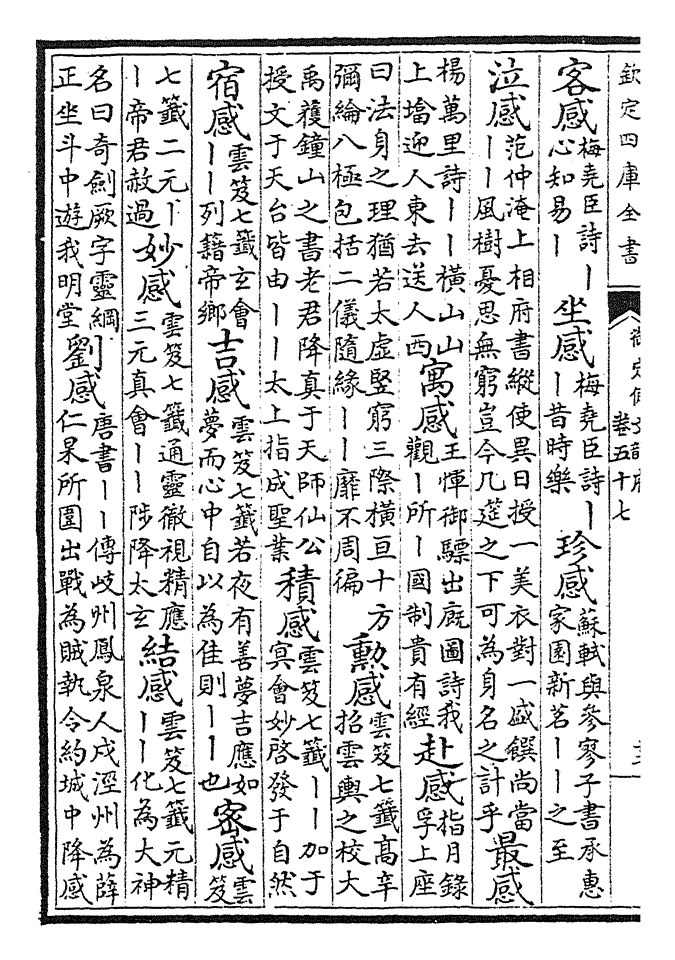 欽定四庫全書
卷五十七
客感梅堯臣詩丨心知易丨 坐感梅堯臣詩丨丨昔時樂 珍感蘇軾與參寥子書承惠家園新茗丨丨之至
泣感范仲淹上相府書縱使異日授一美衣對一盛饌尚當丨丨風樹憂思無窮豈今几筵之下可為身名之計乎 最感
楊萬里詩丨丨橫山山上墖迎人東去送人西 寓感王惲御驃出廐圖詩我觀丨所丨國制貴有經 赴感指月錄孚上座
曰法身之理猶若太虛竪窮三際橫亘十方彌綸八極包括二儀隨緣丨丨靡不周徧 勲感雲笈七籤高辛招雲輿之校大
禹獲鐘山之書老君降真于天師仙公授文于天台皆由丨丨太上指成聖業 積感雲笈七籤丨丨加于㝠會妙啓發于自然
宿感雲笈七籤玄會丨丨列籍帝鄉 吉感雲笈七籤若夜有善夢吉應如夢而心中自以為佳則丨丨也 密感雲笈
七籤二元丨丨帝君赦過 妙感雲笈七籤通靈徹視精應三元真會丨丨陟降太玄 結感雲笈七籤元精丨丨化為大神
名曰奇劍厥字靈綱正坐斗中遊我明堂 劉感唐書丨丨傳岐州鳳泉人戍涇州為薛仁杲所圍出戰為賊執令約城中降感